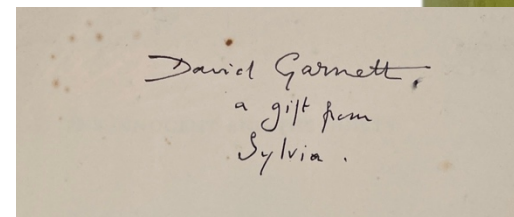 David Garnett,
a gift from
Sylvia.